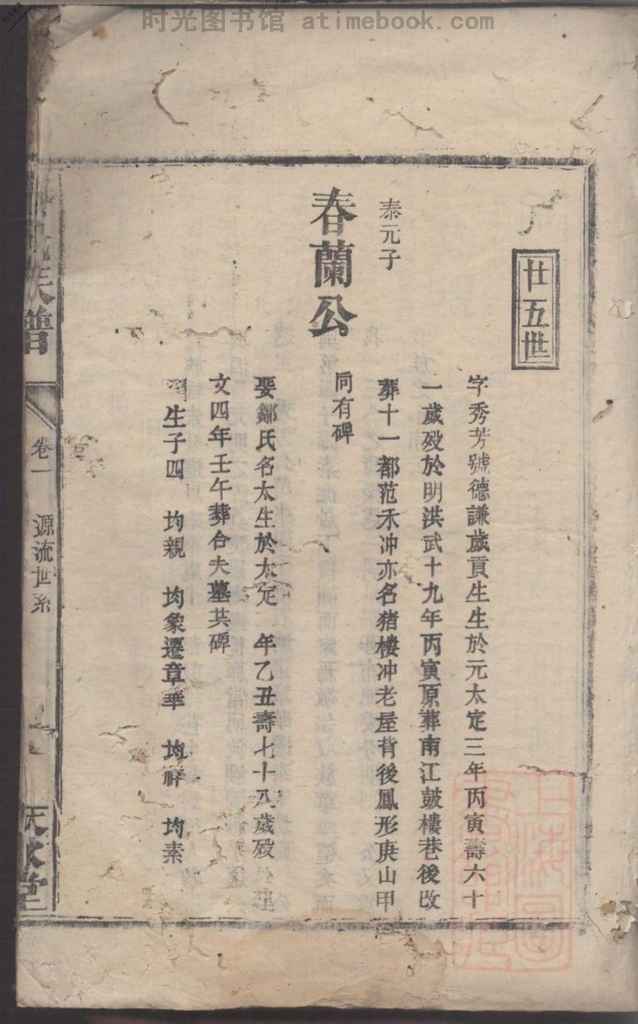 时光图书馆 atimebook.com
廿五世
泰元子
春蘭公
字秀芳號德謙歲貢生生於元太定三年丙寅壽六十
一歲殁於明洪武十九年丙寅原葬南江鼓樓巷後改
葬十一都范禾冲亦名猪樓冲老屋背後鳳形庚山甲
同有碑
娶鄒氏名太生於太定 年乙丑壽七十八歲殁
文四年壬午葬合夫墓其碑
生子四 均親 均象遷章華 均祥 均素
族譜
卷一
源流世系
堂